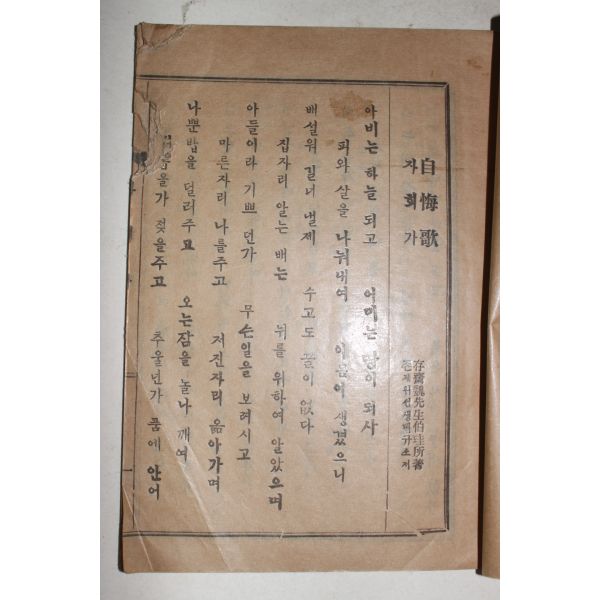 自悔歌
자회가
存齋魏先生伯珪所著
존재위선생백규소저
아비는 하늘 되고 어미는 땅이 되사
피와 살을 나눠내여 이몸이 생겼으니
배설워 길너 낼제 수고도 끝이 없다
집자리 앓는 배는 뉘를 위하여 앓았으며
아들이라 기쁘던가 무슨일을 보려시고
마른자리 나를주고 저진자리 옮아가며
나뿐밥을 덜러주고 오는잠을 놀나 깨여
젖을주고 추울년가 품에 안어